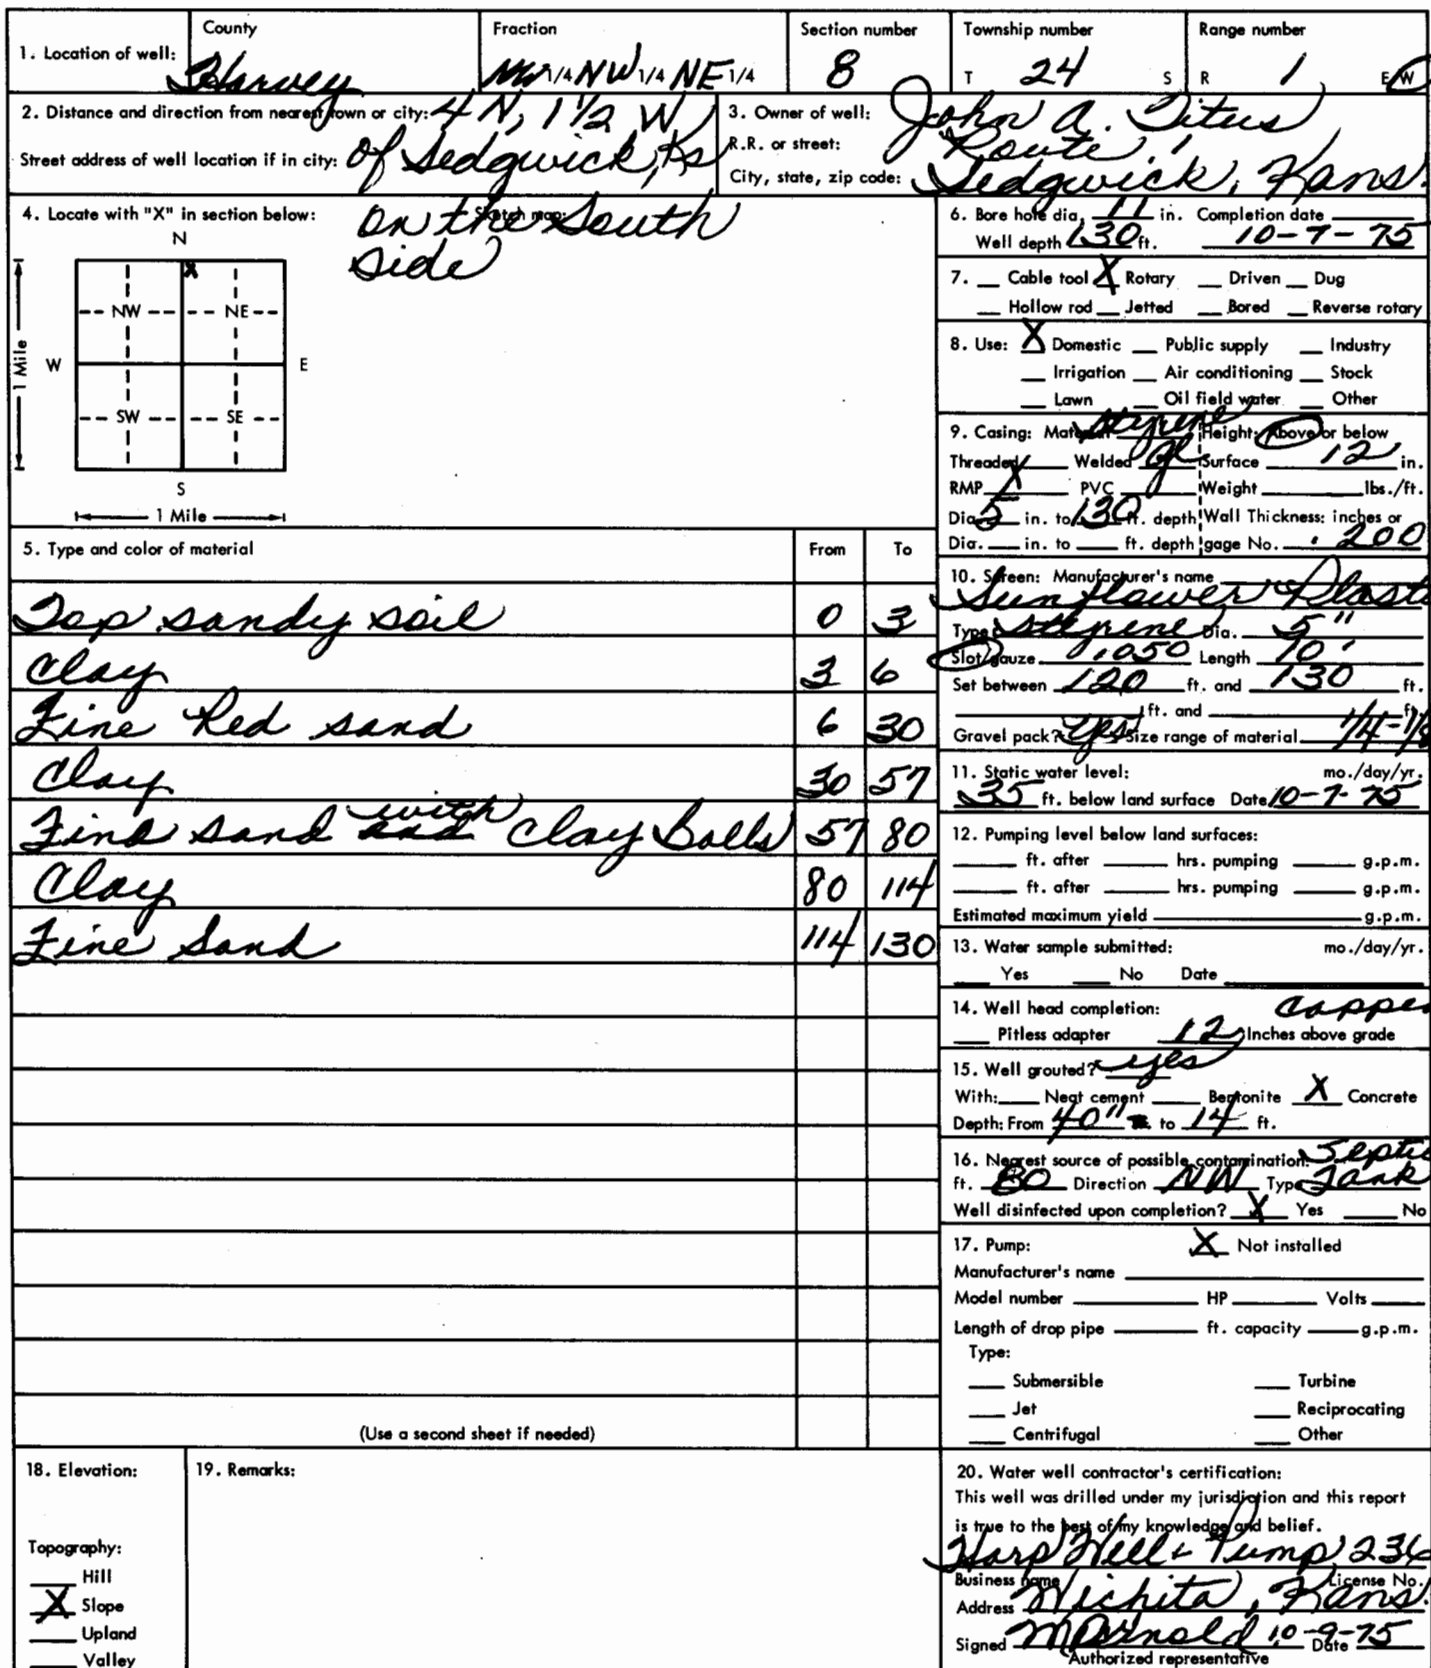 County Fraction Section number Township number Range number
1. Location of well: Harvey NW 1/4 NW 1/4 NE 1/4 8 T 24 S R 1 E W
2. Distance and direction from nearest town or city: 4 N, 1 1/2 W
Street address of well location if in city: of Sedgwick, Ks
3. Owner of well: John A. Titus
R.R. or street: Route 1
City, state, zip code: Sedgwick, Kans.
4. Locate with "X" in section below: Sketch map:
on the South
side
N
X
NW NE
W E
1 Mile
SW SE
S
1 Mile
5. Type and color of material From To
Top sandy soil 0 3
Clay 3 6
Fine Red sand 6 30
Clay 30 57
Fine sand and with Clay Balls 57 80
Clay 80 114
Fine Sand 114 130
(Use a second sheet if needed)
6. Bore hole dia. 11 in. Completion date
Well depth 130 ft. 10-7-75
7. Cable tool X Rotary Driven Dug
Hollow rod Jetted Bored Reverse rotary
8. Use: X Domestic Public supply Industry
Irrigation Air conditioning Stock
Lawn Oil field water Other
9. Casing: Material styrene Height: Above or below
Threaded Welded gl Surface 12 in.
RMP X PVC Weight lbs./ft.
Dia. 5 in. to 130 ft. depth Wall Thickness: inches or
Dia. in. to ft. depth gage No. .200
10. Screen: Manufacturer's name
Sunflower Plast
Type styrene Dia. 5"
Slot/gauze .050 Length 10'
Set between 120 ft. and 130 ft.
ft. and ft.
Gravel pack? Yes Size range of material 1/4-1/8
11. Static water level: mo./day/yr.
35 ft. below land surface Date 10-7-75
12. Pumping level below land surfaces:
ft. after hrs. pumping g.p.m.
ft. after hrs. pumping g.p.m.
Estimated maximum yield g.p.m.
13. Water sample submitted: mo./day/yr.
Yes No Date
14. Well head completion: capped
Pitless adapter 12 Inches above grade
15. Well grouted? yes
With: Neat cement Bentonite X Concrete
Depth: From 40" to 14 ft.
16. Nearest source of possible contamination: Septic
ft. 80 Direction NW Type Tank
Well disinfected upon completion? X Yes No
17. Pump: X Not installed
Manufacturer's name
Model number HP Volts
Length of drop pipe ft. capacity g.p.m.
Type:
Submersible Turbine
Jet Reciprocating
Centrifugal Other
18. Elevation:
Topography:
Hill
X Slope
Upland
Valley
19. Remarks:
20. Water well contractor's certification:
This well was drilled under my jurisdiction and this report
is true to the best of my knowledge and belief.
Harp Well & Pump 236
Business name License No.
Address Wichita, Kans.
Signed M Arnold 10-9-75 Date
Authorized representative